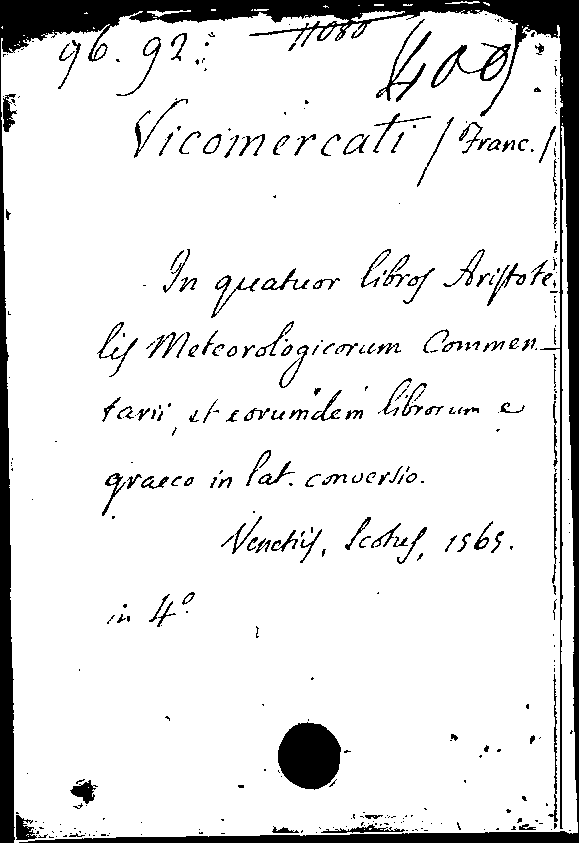 96. 92. 11080 400
Vicomercati / Franc. /
In quatuor libros Aristote
lis Meteorologicorum Commen_
tarii, et eorumdem librorum e
graeco in lat. conversio.
Venetiis, Scotus, 1565.
in 4º